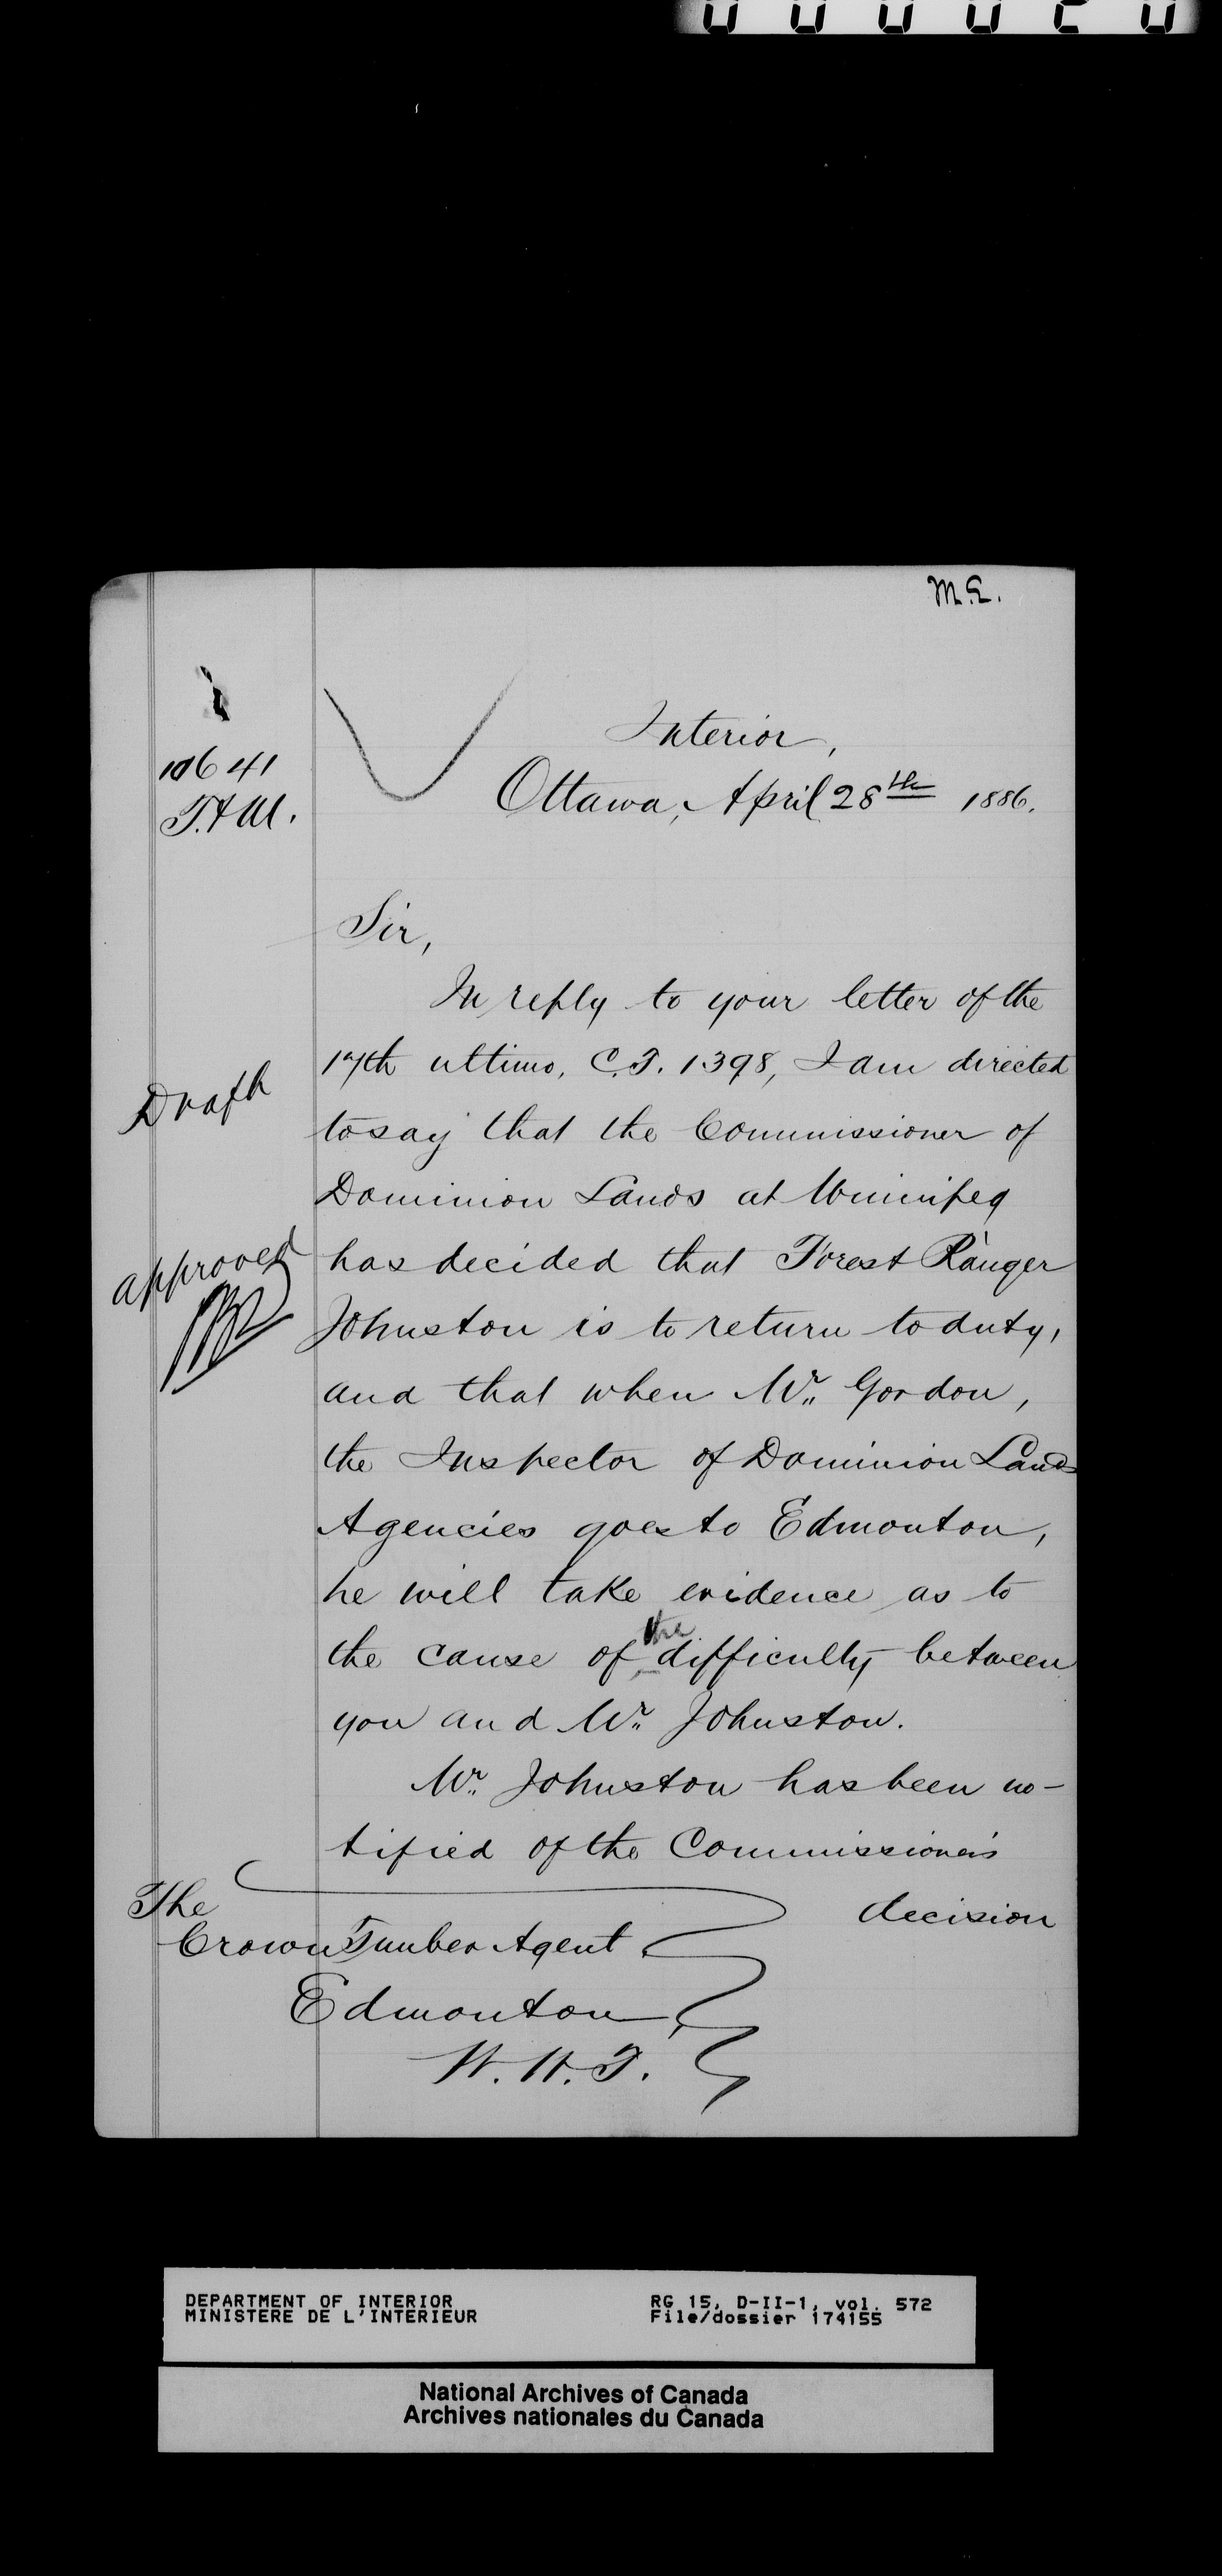 000020
M.E.
10641
T. & M.
Interior,
Ottawa, April 28th 1886.
Sir,
In reply to your letter of the
17th ultimo, C.T. 1398, I am directed
to say that the Commissioner of
Dominion Lands at Winnipeg
has decided that Forest Ranger
Johnston is to return to duty,
and that when Mr. Gordon,
the Inspector of Dominion Lands
Agencies goes to Edmonton,
he will take evidence as to
the cause of the difficulty between
you and Mr. Johnston.
Mr. Johnston has been no-
tified of the Commissioner's
decision
Draft
approved
The
Crown Timber Agent
Edmonton,
N.W.T.
DEPARTMENT OF INTERIOR
MINISTERE DE L'INTERIEUR
RG 15, D-II-1, vol. 572
File/dossier 174155
National Archives of Canada
Archives nationales du Canada